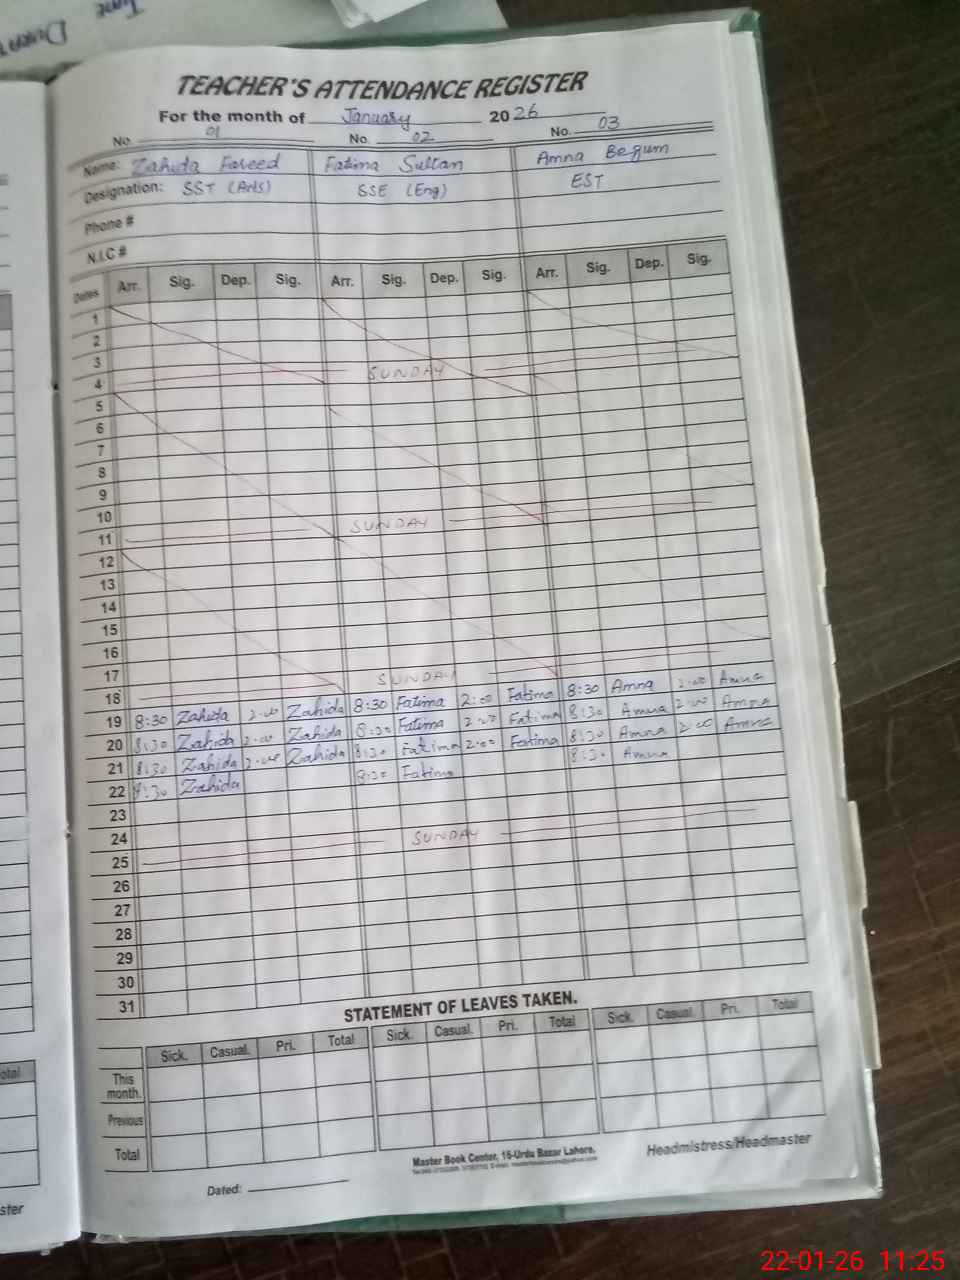 TEACHER'S ATTENDANCE REGISTER
For the month of January 2026
No. 01 No. 02 No. 03
Name: Zahida Fareed Fatima Sultan Amna Begum
Designation: SST (Arts) SSE (Eng) EST
Phone #
N.I.C #
Dates Arr. Sig. Dep. Sig. Arr. Sig. Dep. Sig. Arr. Sig. Dep. Sig.
1
2
3
4 SUNDAY
5
6
7
8
9
10
11 SUNDAY
12
13
14
15
16
17
18 SUNDAY
19 8:30 Zahida 2:00 Zahida 8:30 Fatima 2:00 Fatima 8:30 Amna 2:00 Amna
20 8:30 Zahida 2:00 Zahida 8:30 Fatima 2:00 Fatima 8:30 Amna 2:00 Amna
21 8:30 Zahida 2:00 Zahida 8:30 Fatima 2:00 Fatima 8:30 Amna 2:00 Amna
22 8:30 Zahida 8:30 Fatima 8:30 Amna
23
24
25 SUNDAY
26
27
28
29
30
31
STATEMENT OF LEAVES TAKEN.
Sick. Casual. Pri. Total Sick. Casual. Pri. Total Sick. Casual. Pri. Total
This month.
Previous
Total
Master Book Center, 16-Urdu Bazar Lahore.
Headmistress/Headmaster
Dated:
22-01-26 11:25